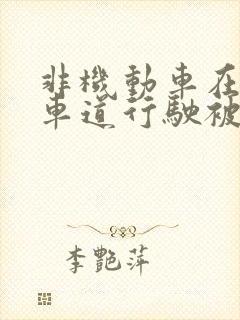 非機動車在
車道行駛被
李艷萍